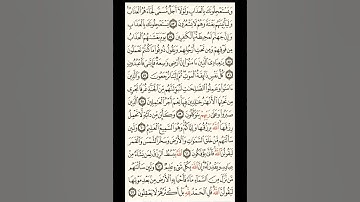 وَيَسْتَعْجِلُونَكَ بِٱلْعَذَابِ وَلَوْلَآ أَجَلٌ مُّسَمًّى لَّجَآءَهُمُ ٱلْعَذَابُ
وَلَيَأْتِيَنَّهُم بَغْتَةً وَهُمْ لَا يَشْعُرُونَ ٥٣ يَسْتَعْجِلُونَكَ بِٱلْعَذَابِ
وَإِنَّ جَهَنَّمَ لَمُحِيطَةٌۢ بِٱلْكَٰفِرِينَ ٥٤ يَوْمَ يَغْشَىٰهُمُ ٱلْعَذَابُ
مِن فَوْقِهِمْ وَمِن تَحْتِ أَرْجُلِهِمْ وَيَقُولُ ذُوقُوا۟ مَا كُنتُمْ تَعْمَلُونَ
٥٥ يَٰعِبَادِىَ ٱلَّذِينَ ءَامَنُوٓا۟ إِنَّ أَرْضِى وَٰسِعَةٌ فَإِيَّٰىَ فَٱعْبُدُونِ
٥٦ كُلُّ نَفْسٍ ذَآئِقَةُ ٱلْمَوْتِ ثُمَّ إِلَيْنَا تُرْجَعُونَ ٥٧
وَٱلَّذِينَ ءَامَنُوا۟ وَعَمِلُوا۟ ٱلصَّٰلِحَٰتِ لَنُبَوِّئَنَّهُم مِّنَ ٱلْجَنَّةِ غُرَفًا تَجْرِى
مِن تَحْتِهَا ٱلْأَنْهَٰرُ خَٰلِدِينَ فِيهَا نِعْمَ أَجْرُ ٱلْعَٰمِلِينَ ٥٨ ٱلَّذِينَ
صَبَرُوا۟ وَعَلَىٰ رَبِّهِمْ يَتَوَكَّلُونَ ٥٩ وَكَأَيِّن مِّن دَآبَّةٍ لَّا تَحْمِلُ
رِزْقَهَا ٱللَّهُ يَرْزُقُهَا وَإِيَّاكُمْ وَهُوَ ٱلسَّمِيعُ ٱلْعَلِيمُ ٦٠ وَلَئِن
سَأَلْتَهُم مَّنْ خَلَقَ ٱلسَّمَٰوَٰتِ وَٱلْأَرْضَ وَسَخَّرَ ٱلشَّمْسَ وَٱلْقَمَرَ
لَيَقُولُنَّ ٱللَّهُ فَأَنَّىٰ يُؤْفَكُونَ ٦١ ٱللَّهُ يَبْسُطُ ٱلرِّزْقَ لِمَن يَشَآءُ مِنْ
عِبَادِهِۦ وَيَقْدِرُ لَهُۥٓ إِنَّ ٱللَّهَ بِكُلِّ شَىْءٍ عَلِيمٌ ٦٢ وَلَئِن سَأَلْتَهُم
مَّن نَّزَّلَ مِنَ ٱلسَّمَآءِ مَآءً فَأَحْيَا بِهِ ٱلْأَرْضَ مِنۢ بَعْدِ مَوْتِهَا
لَيَقُولُنَّ ٱللَّهُ قُلِ ٱلْحَمْدُ لِلَّهِ بَلْ أَكْثَرُهُمْ لَا يَعْقِلُونَ ٦٣